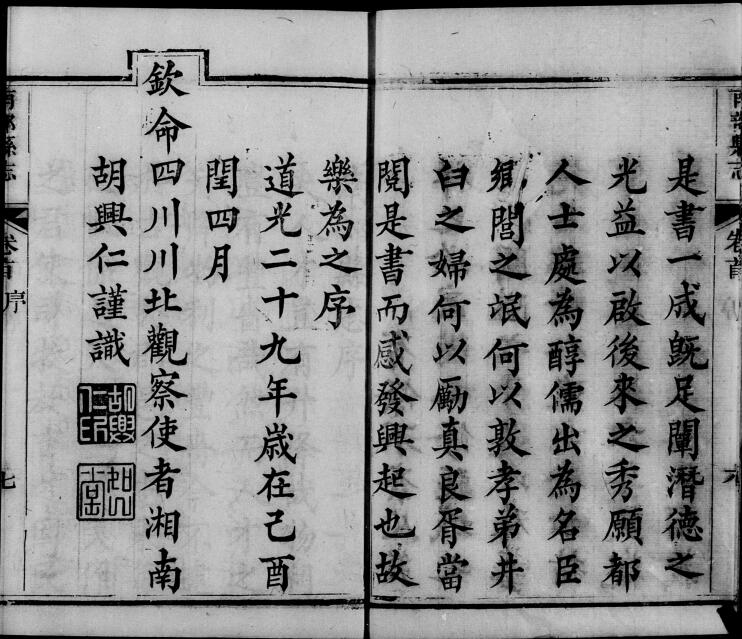 是書一成既足闡潛德之
光益以啟後來之秀願都
人士處為醇儒出為名臣
鄉閭之氓何以敦孝弟井
臼之婦何以勵真良胥當
閱是書而感發興起也故
樂為之序
道光二十九年歲在己酉
閏四月
欽命四川川北觀察使者湘南
胡興仁謹識
胡興仁印
南部縣志
卷首
序
七
南部縣志
卷首